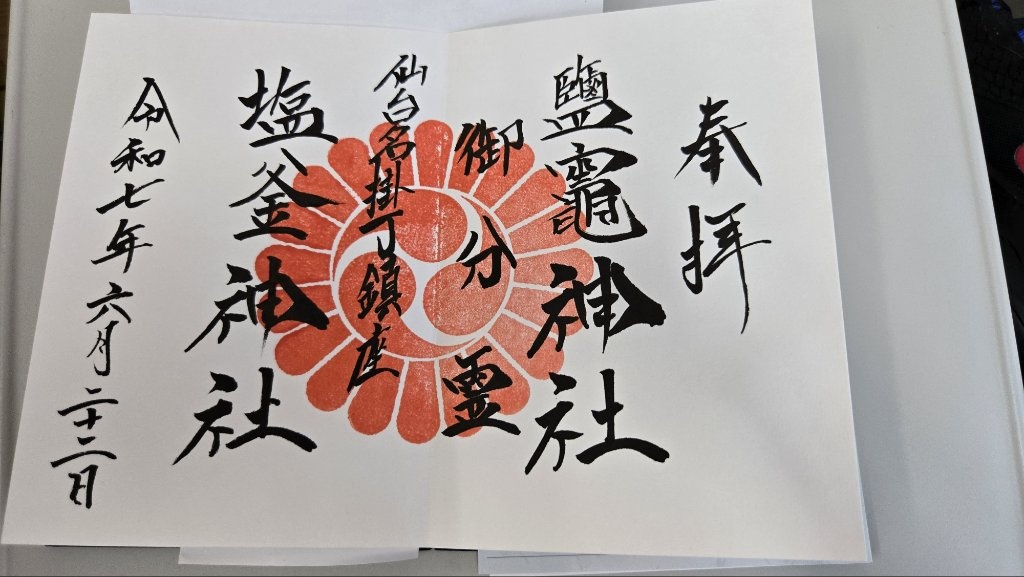 奉拝
鹽竈神社
御分霊
仙台名掛丁鎮座
塩釜神社
令和七年六月二十二日